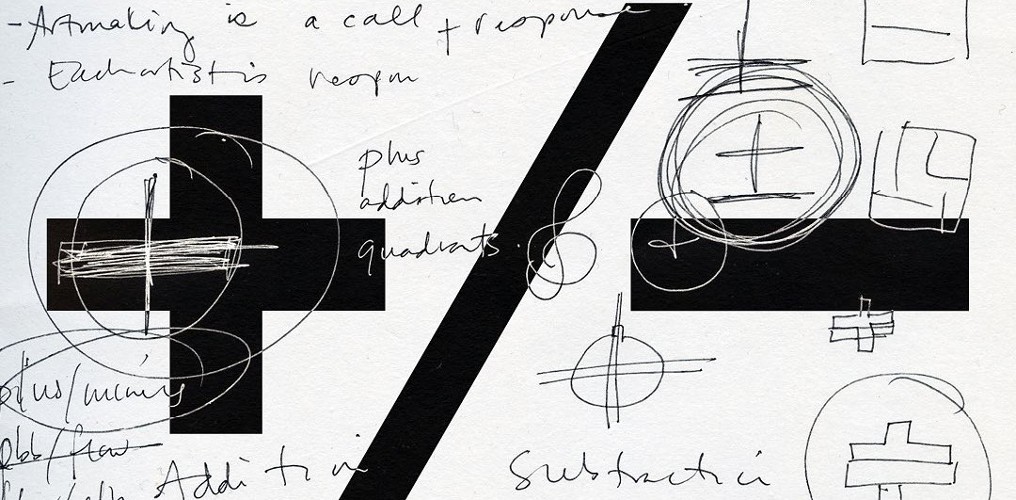 - Artmaking is a call + response
- Eucharist is
plus
addition
quadrants
plus/minus
ebb/flow
Addition
Subtraction